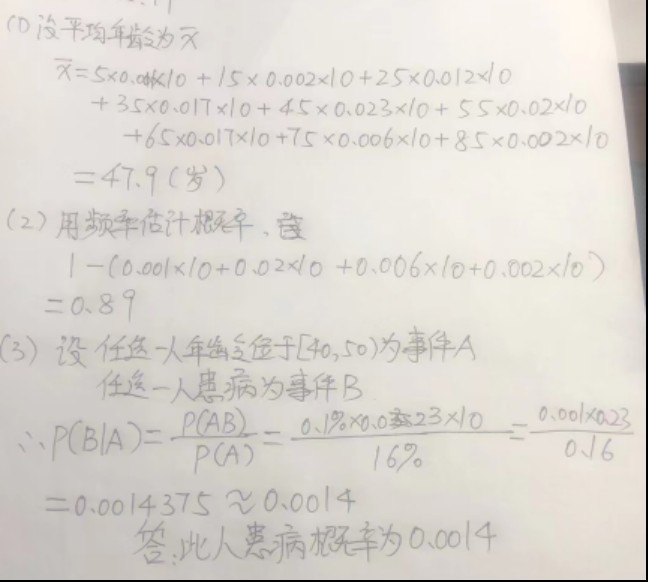 (1) 设平均年龄为x̄
x̄=5×0.001×10+15×0.002×10+25×0.012×10
+35×0.017×10+45×0.023×10+55×0.02×10
+65×0.017×10+75×0.006×10+85×0.002×10
=47.9(岁)
(2) 用频率估计概率、设
1-(0.001×10+0.02×10+0.006×10+0.002×10)
=0.89
(3) 设任选一人年龄位于[40,50)为事件A
任选一人患病为事件B
∴P(B|A)=P(AB)/P(A)=0.1%×0.023×10/16%=0.001×0.23/0.16
=0.0014375≈0.0014
答:此人患病概率为0.0014